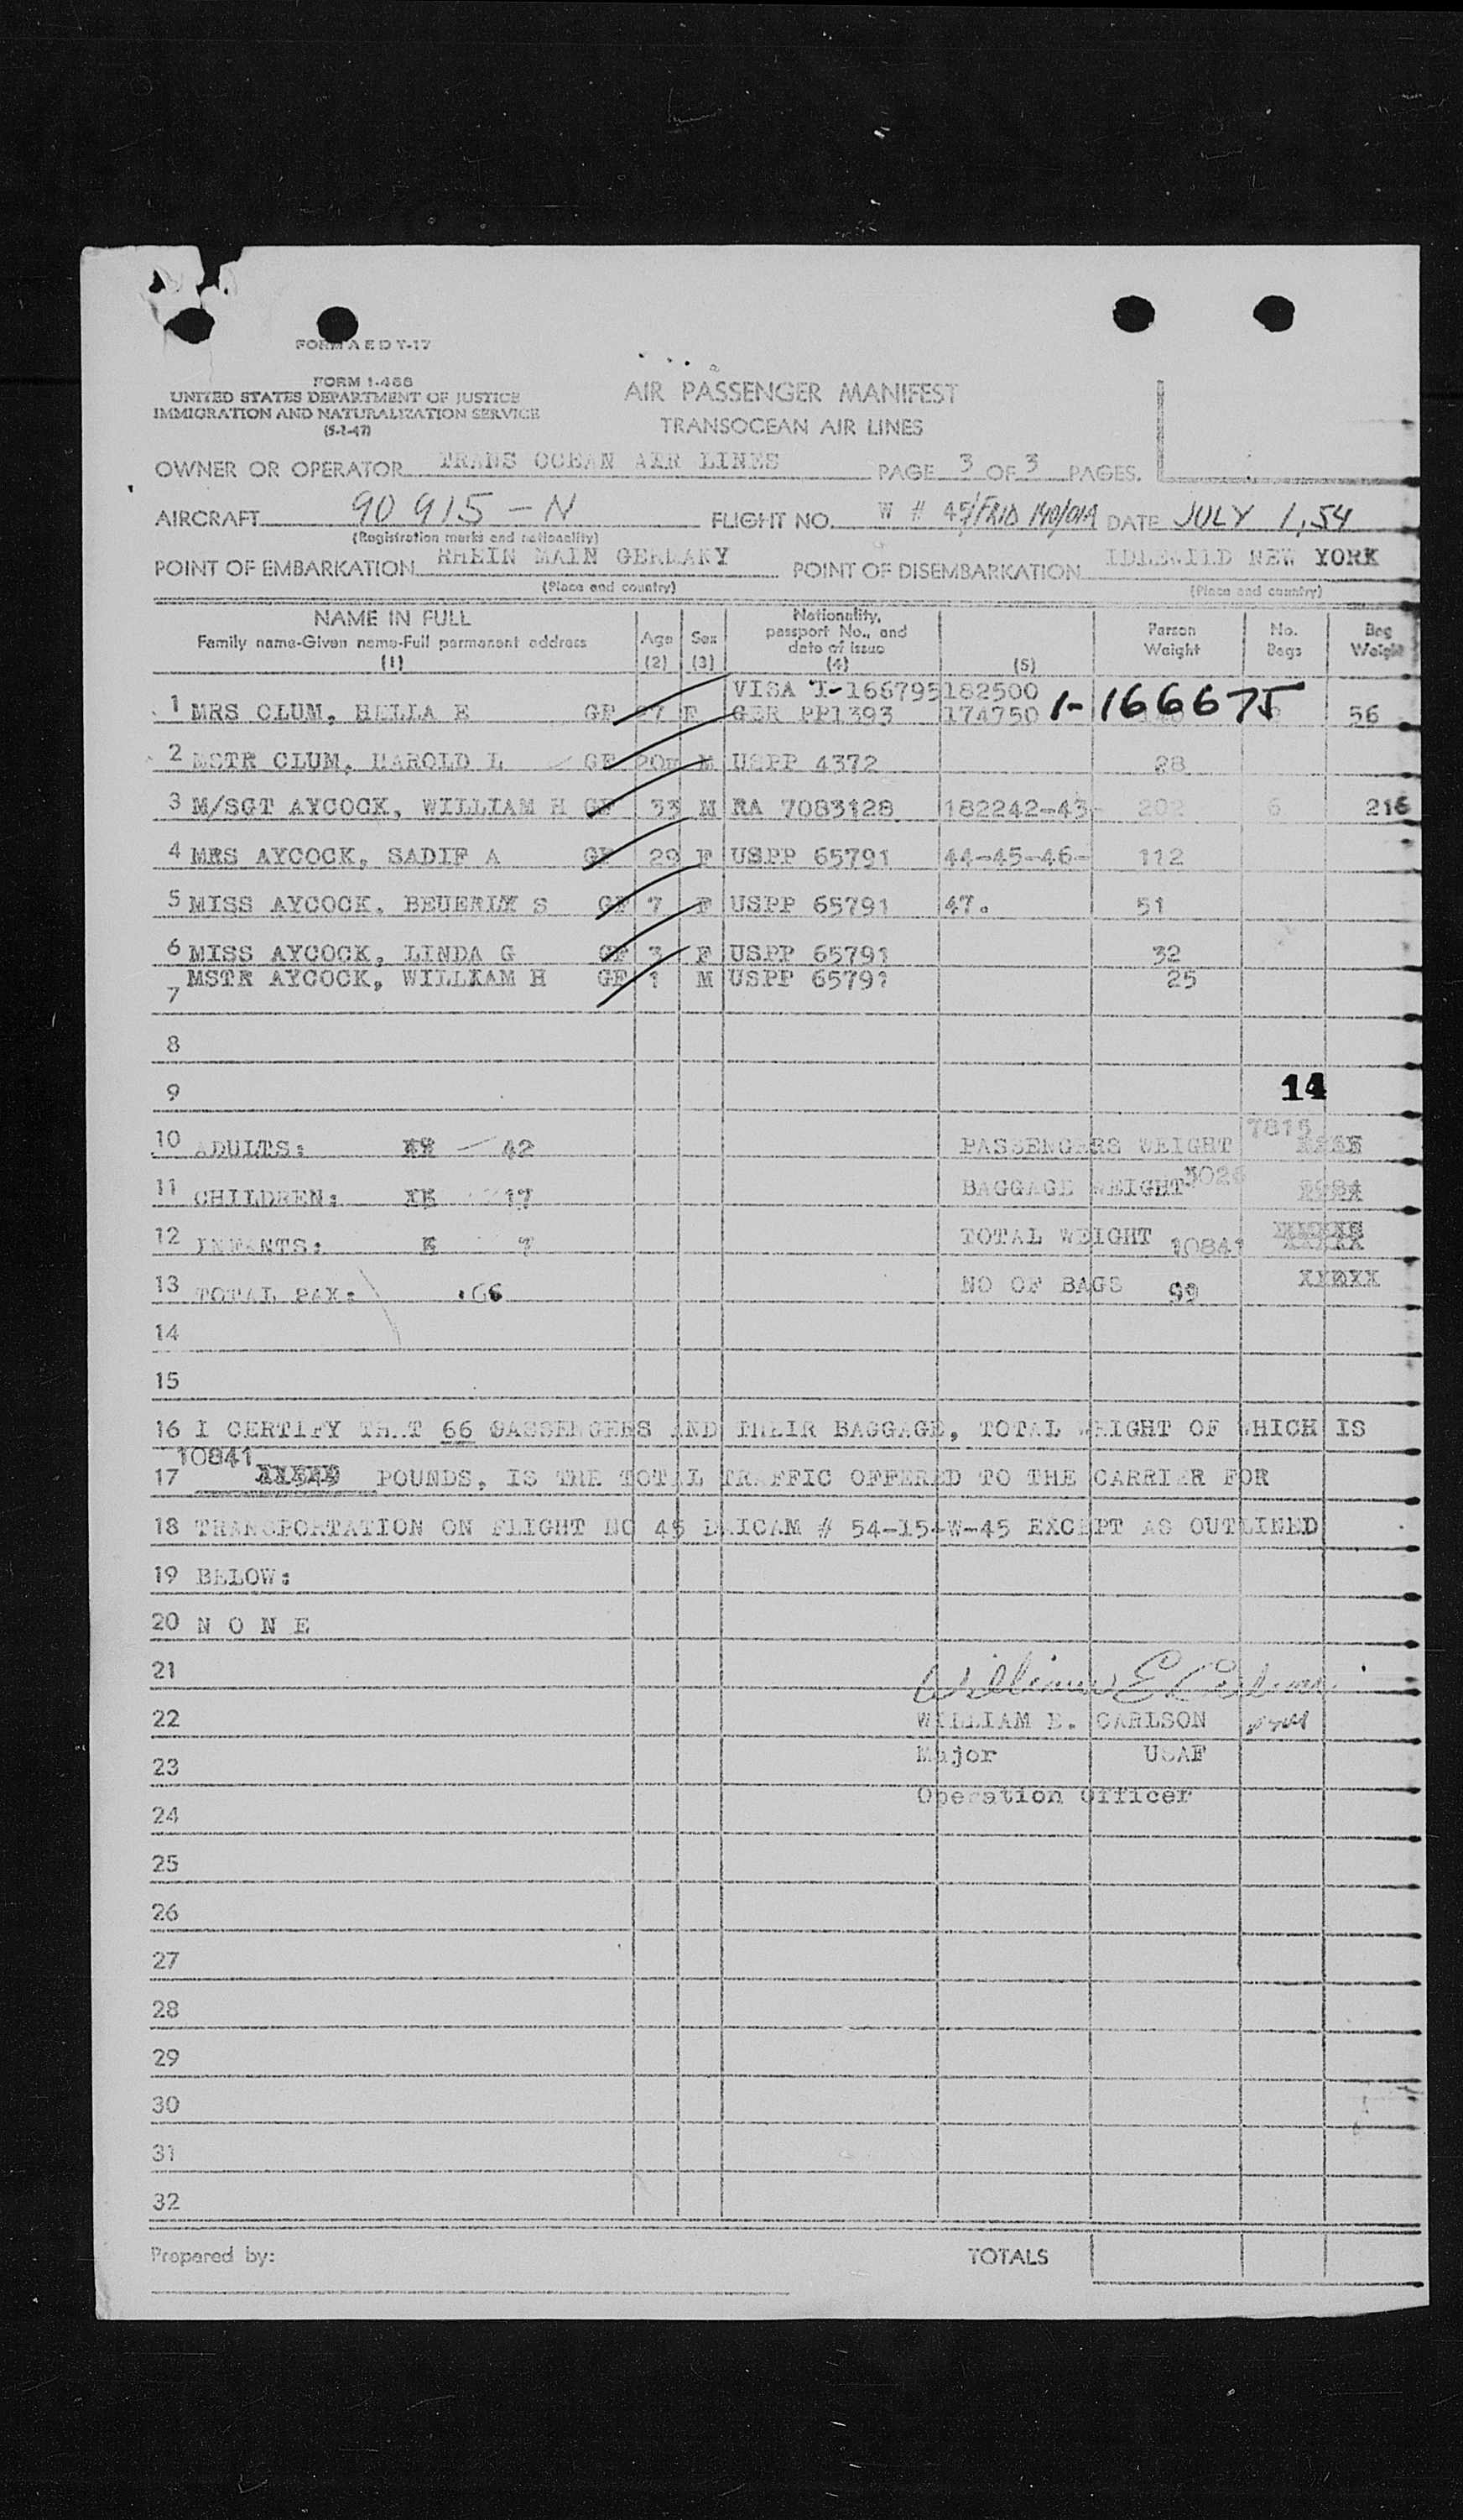 FORM A E D T-17
FORM I-466
UNITED STATES DEPARTMENT OF JUSTICE
IMMIGRATION AND NATURALIZATION SERVICE
(5-1-47)
AIR PASSENGER MANIFEST
TRANSOCEAN AIR LINES
OWNER OR OPERATOR TRANS OCEAN AIR LINES PAGE 3 OF 3 PAGES.
AIRCRAFT 90915-N FLIGHT NO. W # 45 DATE JULY 1, 54
(Registration marks and nationality)
POINT OF EMBARKATION RHEIN MAIN GERMANY POINT OF DISEMBARKATION IDLEWILD NEW YORK
(Place and country) (Place and country)
NAME IN FULL
Family name-Given name-Full permanent address
(1)
Age
(2)
Sex
(3)
Nationality,
passport No., and
date of issue
(4)
(5)
Person
Weight
No.
Bags
Bag
Weight
VISA I-166795 182500
1 MRS CLUM, HELLA E GF 27 F GER PP1393 174750 1-166675 56
2 MSTR CLUM, HAROLD L GF 20m M USPP 4372 28
3 M/SGT AYCOCK, WILLIAM H GF 33 M RA 7083128 182242-43- 202 6 216
4 MRS AYCOCK, SADIF A GF 29 F USPP 65791 44-45-46- 112
5 MISS AYCOCK, BEUERLY S GF 7 F USPP 65791 47. 51
6 MISS AYCOCK, LINDA G GF 3 F USPP 65791 32
7 MSTR AYCOCK, WILLIAM H GF 1 M USPP 65791 25
8
9 14
10 ADULTS: 42 PASSENGERS WEIGHT 7815
11 CHILDREN: 17 BAGGAGE WEIGHT 3026
12 INFANTS: 7 TOTAL WEIGHT 10841
13 TOTAL PAX: 66 NO OF BAGS 99
14
15
16 I CERTIFY THAT 66 PASSENGERS AND THEIR BAGGAGE, TOTAL WEIGHT OF WHICH IS
10841
17 POUNDS, IS THE TOTAL TRAFFIC OFFERED TO THE CARRIER FOR
18 TRANSPORTATION ON FLIGHT NO 45 DAICAM # 54-15-W-45 EXCEPT AS OUTLINED
19 BELOW:
20 N O N E
21 William E Carlson
22 WILLIAM E. CARLSON
23 Major USAF
24 Operation Officer
25
26
27
28
29
30
31
32
Prepared by: TOTALS